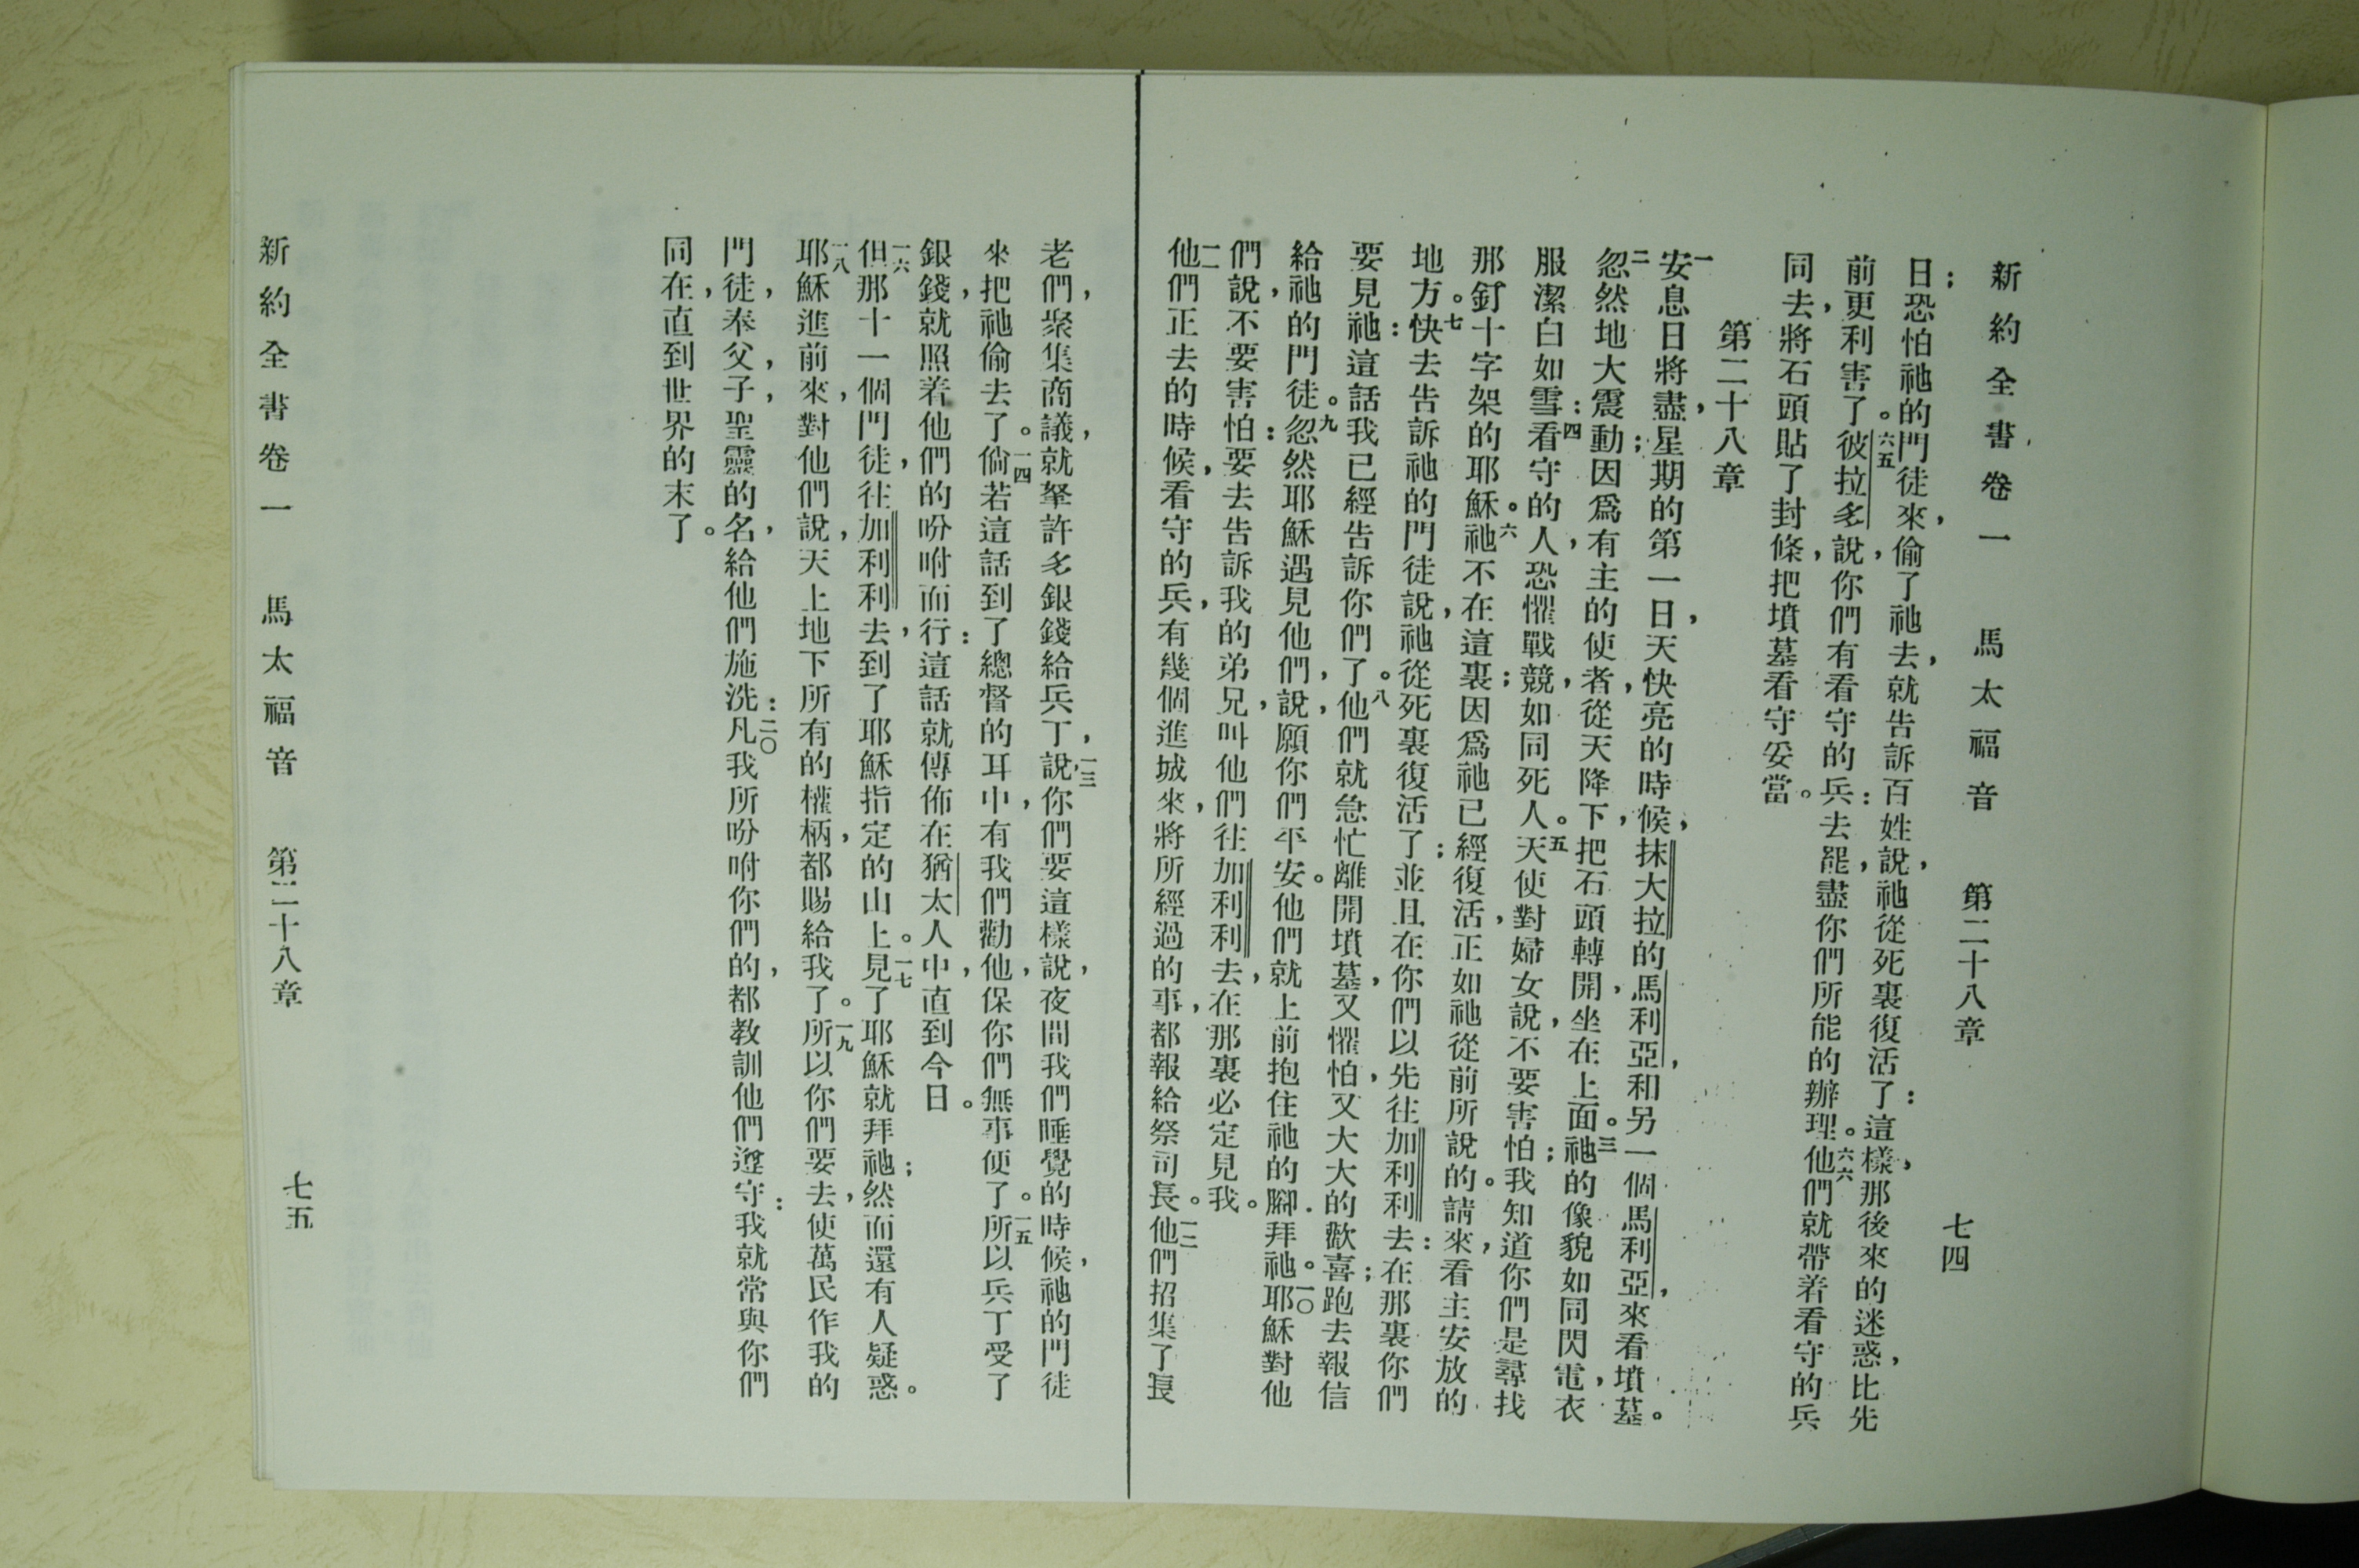 新約全書卷一　馬太福音　第二十八章　七四
日恐怕祂的門徒來，偷了祂去，就告訴百姓說，祂從死裏復活了：這樣，那後來的迷惑，比先
前更利害了。六五彼拉多說，你們有看守的兵：去罷，盡你們所能的辦理。六六他們就帶着看守的兵
同去，將石頭貼了封條，把墳墓看守妥當。
第二十八章
一安息日將盡，星期的第一日，天快亮的時候，抹大拉的馬利亞，和另一個馬利亞，來看墳墓。
二忽然地大震動；因爲有主的使者，從天降下，把石頭轉開，坐在上面。三祂的像貌如同閃電，衣
服潔白如雪：四看守的人，恐懼戰競，如同死人。五天使對婦女說，不要害怕；我知道你們是尋找
那釘十字架的耶穌。六祂不在這裏；因爲祂已經復活，正如祂從前所說的。請來，看主安放的
地方。七快去告訴祂的門徒說，祂從死裏復活了；並且在你們以先往加利利去：在那裏你們
要見祂：這話我已經告訴你們了。八他們就急忙離開墳墓，又懼怕，又大大的歡喜；跑去報信
給祂的門徒。九忽然耶穌遇見他們，說，願你們平安。他們就上前抱住祂的腳，拜祂。一〇耶穌對他
們說，不要害怕：要去告訴我的弟兄，叫他們往加利利去，在那裏必定見我。
一一他們正去的時候，看守的兵，有幾個進城來，將所經過的事，都報給祭司長。一二他們招集了長
老們，聚集商議，就拏許多銀錢給兵丁，一三說，你們要這樣說，夜間我們睡覺的時候，祂的門徒
來把祂偷去了。一四倘若這話到了總督的耳中，有我們勸他，保你們無事便了。一五所以兵丁受了
銀錢，就照着他們的吩咐而行：這話就傳佈在猶太人中，直到今日。
一六但那十一個門徒，往加利利去，到了耶穌指定的山上。一七見了耶穌就拜祂；然而還有人疑惑。
一八耶穌進前來，對他們說，天上地下所有的權柄，都賜給我了。一九所以你們要去，使萬民作我的
門徒，奉父，子，聖靈的名，給他們施洗：二〇凡我所吩咐你們的，都教訓他們遵守：我就常與你們
同在，直到世界的末了。
新約全書卷一　馬太福音　第二十八章　七五